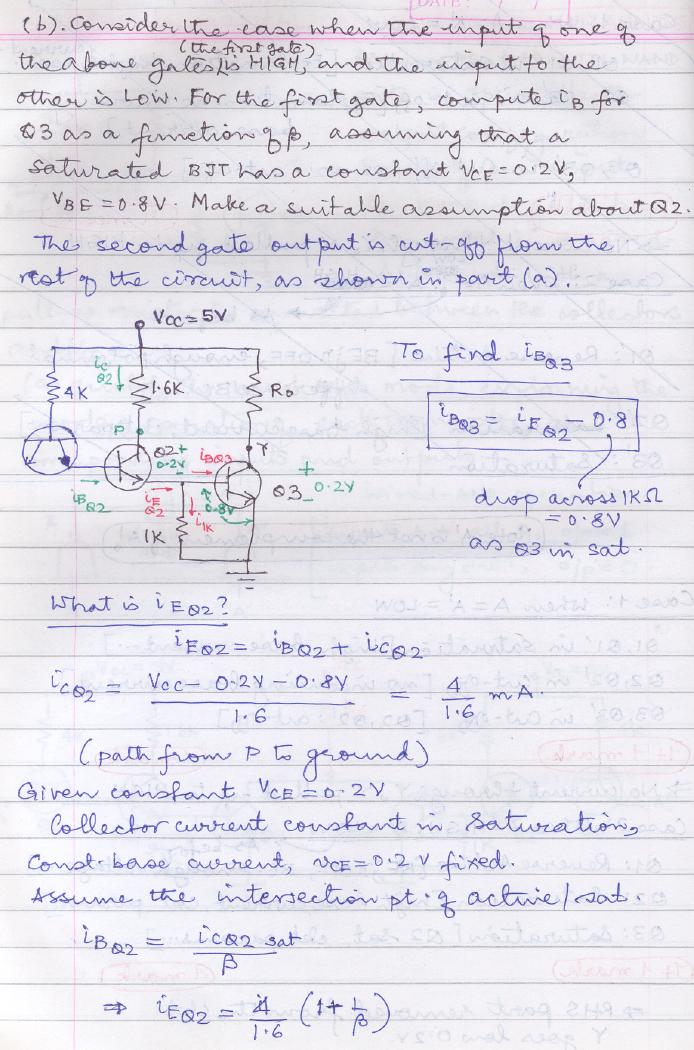 (b). Consider the case when the input of one of
(the first gate)
the above gates is HIGH, and the input to the
other is LOW. For the first gate, compute iB for
Q3 as a function of β, assuming that a
saturated BJT has a constant VCE = 0.2V,
VBE = 0.8V. Make a suitable assumption about Q2.
The second gate output is cut-off from the
rest of the circuit, as shown in part (a).
Vcc = 5V
4K
iC Q2
1.6K
Ro
P
Q2
+
0.2V
iBQ3
Y
Q3
+
0.2V
-
iB Q2
iE Q2
0.8V
i1K
1K
To find iBQ3
iBQ3 = iEQ2 - 0.8
drop across 1KΩ
= 0.8V
as Q3 in sat.
What is iEQ2?
iEQ2 = iBQ2 + iCQ2
iCQ2 = Vcc - 0.2V - 0.8V / 1.6 = 4 / 1.6 mA.
(path from P to ground)
Given constant VCE = 0.2V
Collector current constant in saturation,
Const. base current, vCE = 0.2 V fixed.
Assume the intersection pt. of active/sat.
iBQ2 = iCQ2 sat / β
⇒ iEQ2 = 4 / 1.6 (1 + 1/β)